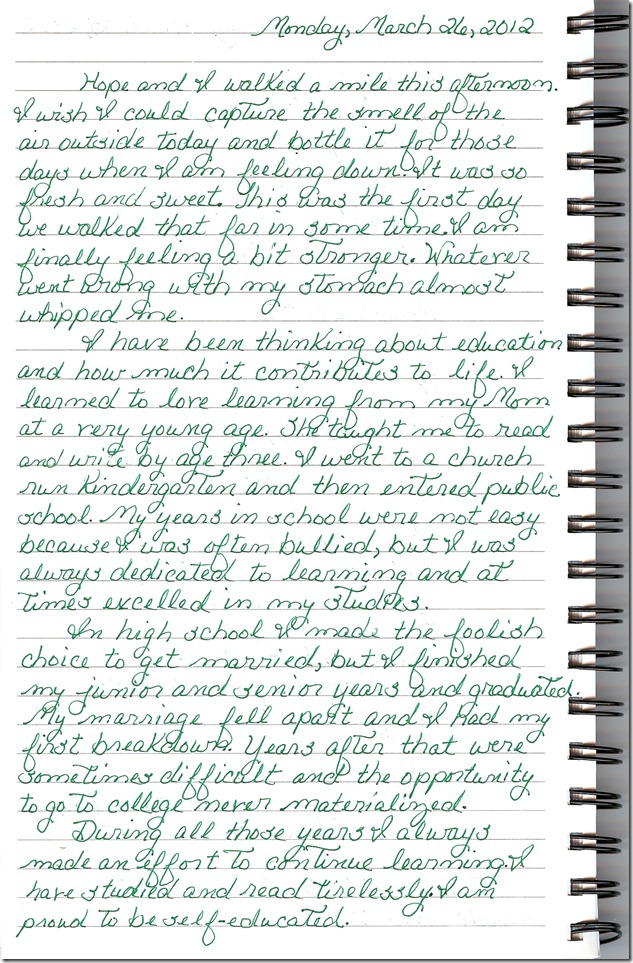 Monday, March 26, 2012
Hope and I walked a mile this afternoon.
I wish I could capture the smell of the
air outside today and bottle it for those
days when I am feeling down. It was so
fresh and sweet. This was the first day
we walked that far in some time. I am
finally feeling a bit stronger. Whatever
went wrong with my stomach almost
whipped me.
I have been thinking about education
and how much it contributes to life. I
learned to love learning from my Mom
at a very young age. She taught me to read
and write by age three. I went to a church
run Kindergarten and then entered public
school. My years in school were not easy
because I was often bullied, but I was
always dedicated to learning and at
times excelled in my studies.
In high school I made the foolish
choice to get married, but I finished
my junior and senior years and graduated.
My marriage fell apart and I had my
first breakdown. Years after that were
sometimes difficult and the opportunity
to go to college never materialized.
During all those years I always
made an effort to continue learning. I
have studied and read tirelessly. I am
proud to be self-educated.